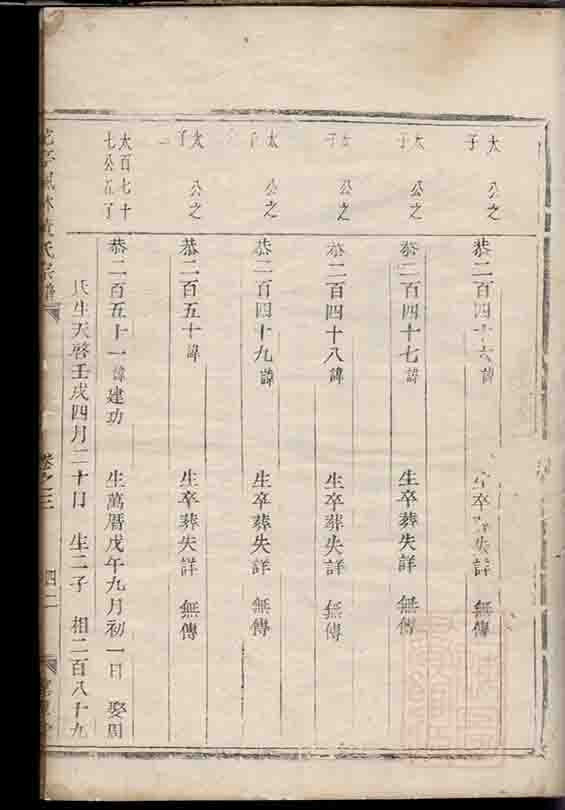 太 公之
子
恭二百四十六諱
生卒葬失詳 無傳
太 公之
子
恭二百四十七諱
生卒葬失詳 無傳
太 公之
子
恭二百四十八諱
生卒葬失詳 無傳
太 公之
子
恭二百四十九諱
生卒葬失詳 無傳
太 公之
子
恭二百五十諱
生卒葬失詳 無傳
太百七十
七公五子
恭二百五十一諱建功 生萬曆戊午九月初一日 娶周
氏生天啓壬戌四月二十日 生二子 相二百八十九
黃氏宗譜
卷之三
四二